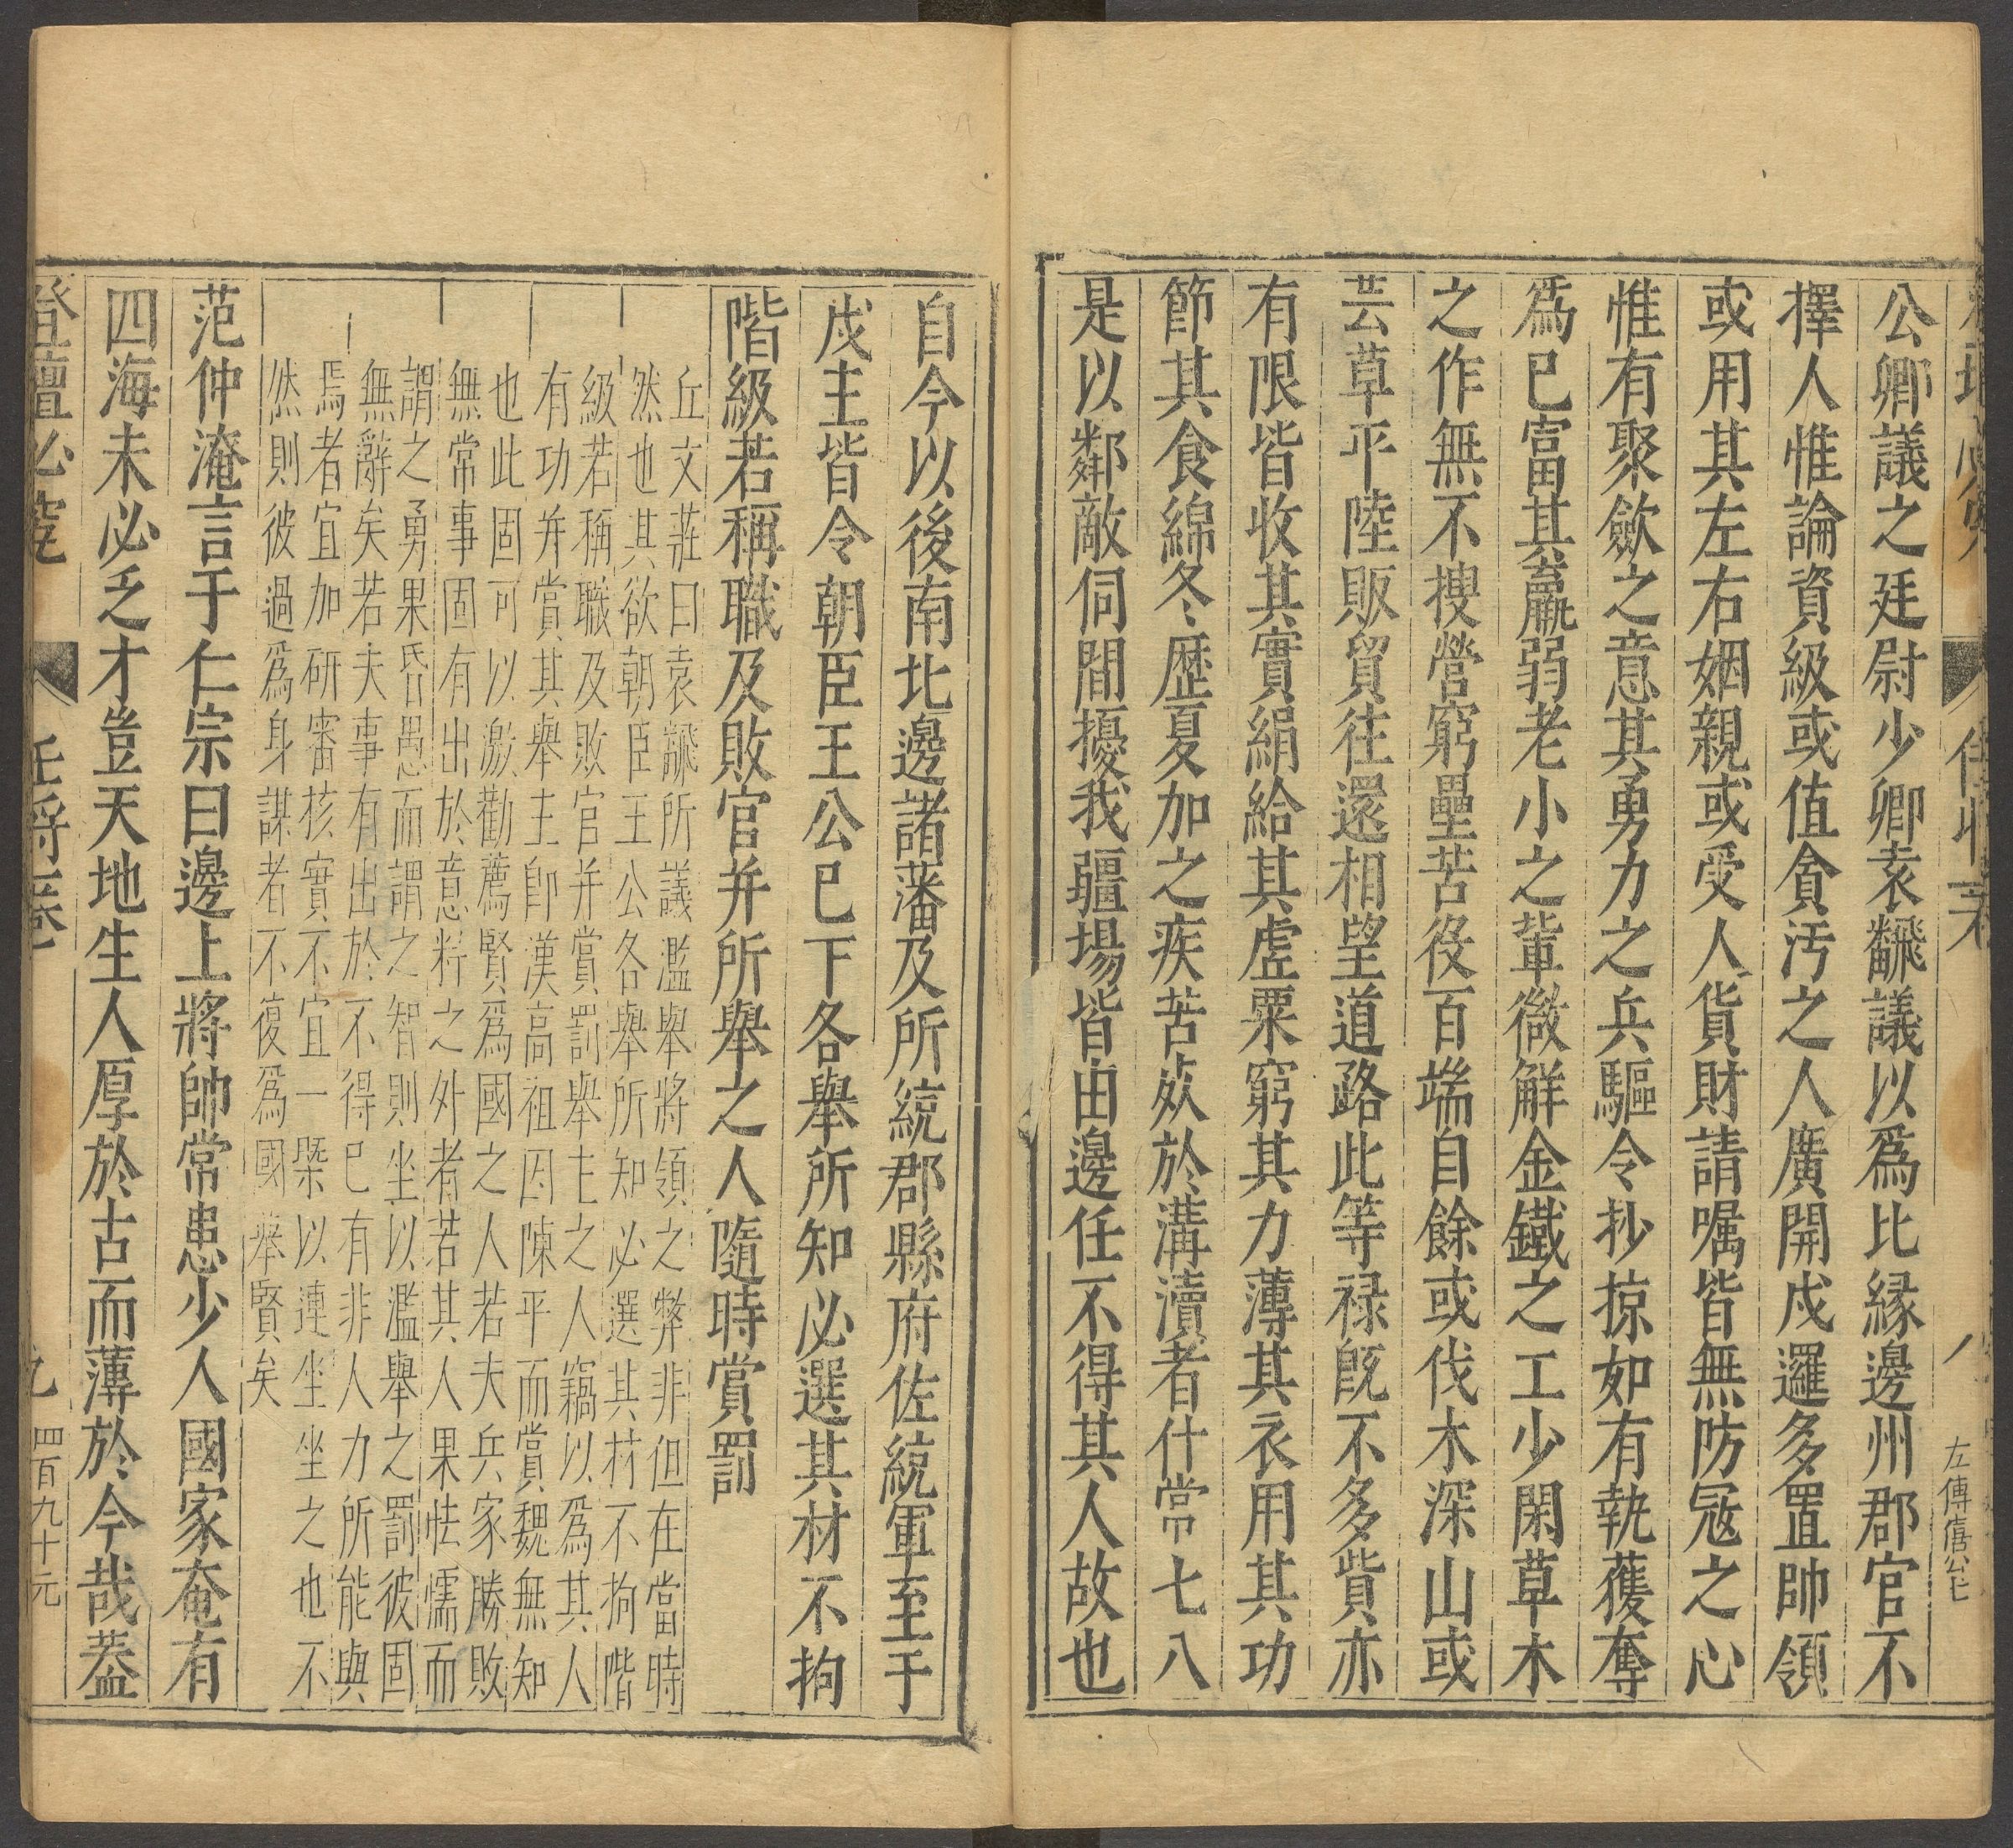 公卿議之廷尉少卿袁飜議以爲比縁邊州郡官不
擇人惟論資級或值貪汚之人廣開戍邏多置帥領
或用其左右姻親或受人貨財請囑皆無防冦之心
惟有聚歛之意其勇力之兵驅令抄掠如有執獲奪
爲已富其羸弱老小之軰微解金鐵之工少閑草木
之作無不搜營窮壘苦役百端自餘或伐木深山或
芸草平陸販貿往還相望道路此等禄旣不多貲亦
有限皆收其實絹給其虛粟窮其力薄其衣用其功
節其食綿冬歷夏加之疾苦𣦸於溝瀆者什常七八
是以鄰敵伺間擾我疆場皆由邊任不得其人故也
左傳僖公
自今以後南北邊諸藩及所綂郡縣府佐綂軍至于
戍主皆令朝臣王公已下各舉所知必選其材不拘
階級若稱職及敗官并所舉之人隨時賞罰
丘文莊曰袁飜所議濫舉將領之弊非但在當時
然也其欲朝臣王公各舉所知必選其材不拘階
級若稱職及敗官并賞罰舉主之人竊以爲其人
有功并賞其舉主卽漢高祖因陳平而賞魏無知
也此固可以激勸薦賢爲國之人若夫兵家勝敗
無常事固有出於意料之外者若其人果怯懦而
謂之勇果昏愚而謂之智則坐以濫舉之罰彼固
無辭矣若夫事有出於不得已有非人力所能與
焉者宜加研審核實不宜一槩以連坐坐之也不
然則彼過爲身謀者不復爲國舉賢矣
范仲淹言于仁宗曰邊上將帥常患少人國家奄有
四海未必乏才豈天地生人厚於古而薄於今哉葢
登壇必究
任將
九
四百九十元